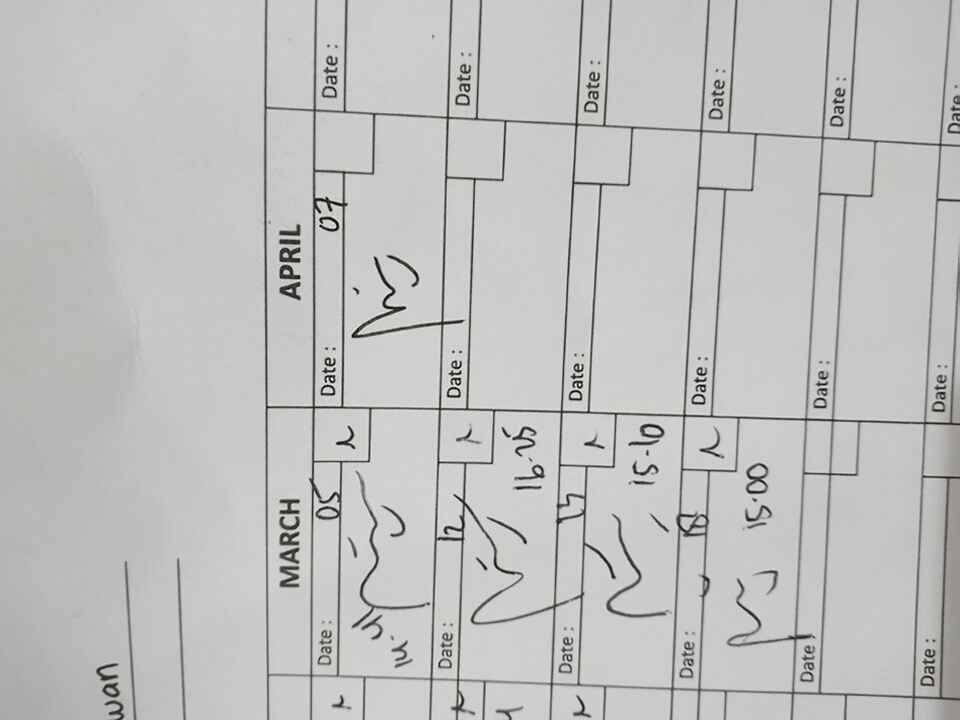 wan
MARCH
APRIL
Date :
Date : 05
Date : 07
Date :
Date : 12
16.25
Date :
Date :
Date :
15.10
Date :
Date :
Date : 18
15.00
Date :
Date :
Date :
Date :
Date :
Date :
Date :
Date :